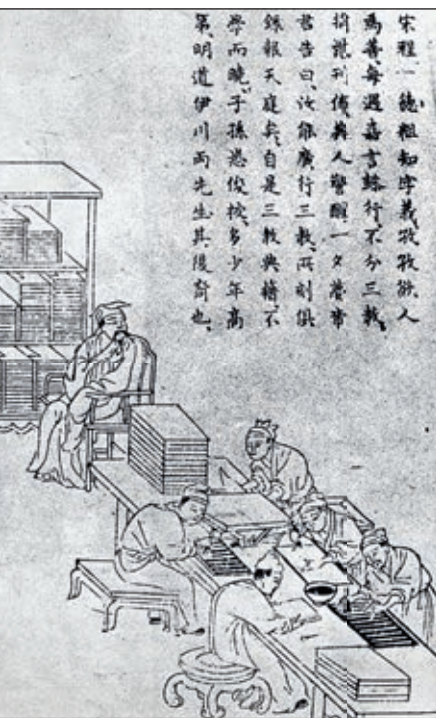 宋程一德粗知字義孜孜欲人
為善每遇嘉言懿行不分三教、
捐貲刊傳與人警醒一夕夢帝
君告曰、汝能廣行三教、所刻俱
錄報天庭矣、自是三教典籍、不
學而曉、子孫悉俊拔、多少年高
第、明道伊川兩先生其後裔也、